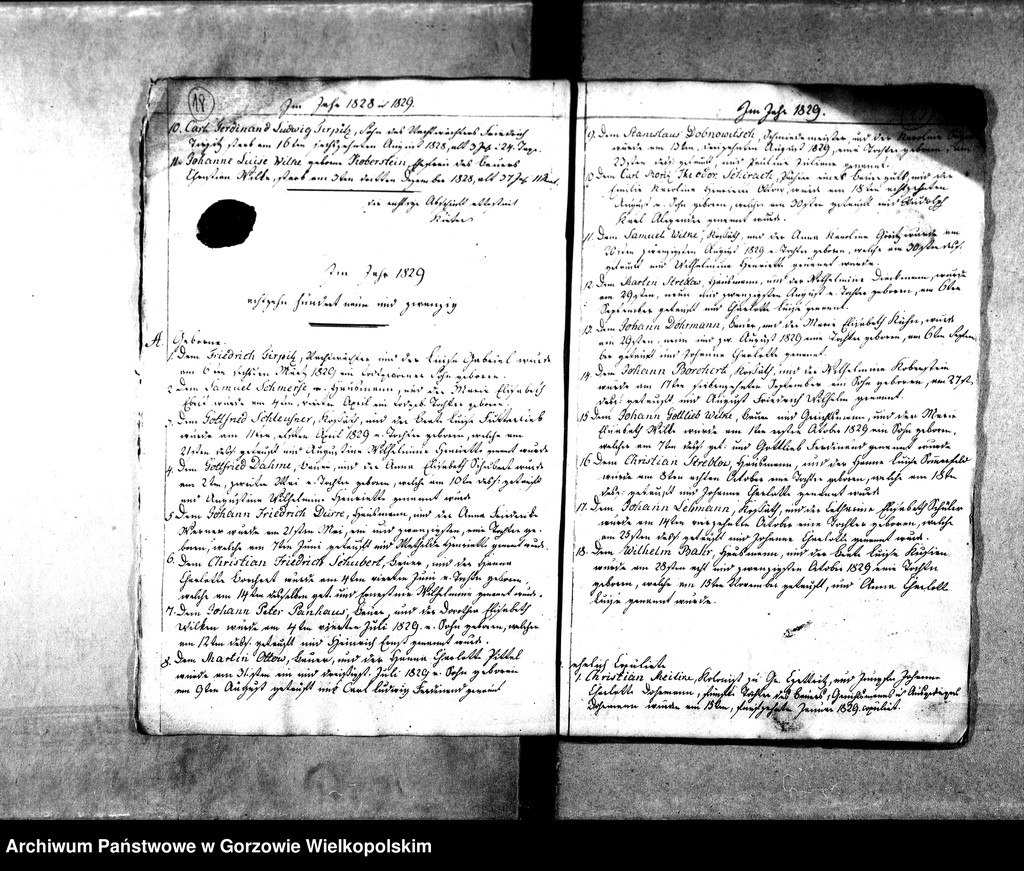 18
Im Jahr 1828 u 1829.
10. Carl Ferdinand Ludwig Tirpitz, Sohn des Nachtwächters Friedrich
Tirpitz starb am 16ten sechszehnten August 1828, alt 3 J. 24 Tage.
11. Johanne Luise Wilke geborne Koberstein, Ehefrau des Bauers
Christian Wilke, starb am 3ten dritten Dezember 1828, alt 37 J.
die richtige Abschrift attestirt
Im Jahr 1829
achtzehn hundert neun und zwanzig
A. Geborne.
1. Dem Friedrich Tirpitz, Nachtwächter und der Luise Gabriel wurde
am 6ten sechsten März 1829 ein todtgeborner Sohn geboren.
2. Dem Samuel Schmerse, Hausmann, und der Marie Elisabeth
wurde am 4ten, vierten April eine Tochter geboren.
3. Dem Gottfried Schleusner, Kossäth, und der Luise
wurde am 11ten, elften April 1829 e. Tochter geboren, welche am
21sten dess. getauft und Augustine Wilhelmine Henriette genannt wurde
4. Dem Gottfried Dahme, Bauer, und der Anna Elisabeth Schubert wurde
am 2ten, zweiten Mai e. Tochter geboren, welche am 10ten dess. getauft
und Augustine Wilhelmine Henriette genannt wurde
5. Dem Johann Friedrich Dürre, Hausmann, und der Anna Friederike
Werner wurde am 21sten Mai, ein und zwanzigsten, eine Tochter ge-
boren, welche am 7ten Juni getauft und Mathilde Henriette genannt wurde.
6. Dem Christian Friedrich Schubert, Bauer, und der Hanna
Charlotte Borchert wurde am 4ten vierten Juni e. Tochter geboren,
welche am 14ten desselben get. und Ernestine Wilhelmine genannt wurde.
7. Dem Johann Peter Panhaus, Bauer, und der Dorothea Elisabeth
Wilken wurde am 4ten vierten Juli 1829. e. Sohn geboren, welcher
am 12ten dess. getauft und Heinrich Ernst genannt wurde.
8. Dem Martin Ottow, Bauer, und der Hanna Charlotte Püttel
wurde am 31sten ein und dreißigst. Juli 1829 e. Sohn geboren
am 9ten August getauft und Carl Ludwig Ferdinand genannt
Im Jahr 1829.
9. Dem Stanislaus Dobnowitsch, Schmiedemeister und der Karoline
wurde am 13ten, dreizehnten August 1829, eine Tochter geboren, am
23sten dess. getauft, und Pauline Juliane genannt.
10. Dem Carl Moritz Theodor Schirach, eines Bauerguts, und der
Emilie Karoline Henriette Ottow, wurde am 18ten achtzehnten
August e. Sohn geboren, welcher am 30sten getauft und Rudolph
Karl Alexander genannt wurde.
11. Dem Samuel Wilke, Kossäth, und der Anna Karoline wurde am
August 1829 e. Tochter geboren, welche am 30sten dess.
getauft und Wilhelmine Henriette genannt wurde.
12. Dem Martin Streblow, Hausmann, und der Wilhelmine Dieckmann, wurde
am 29sten, neun und zwanzigsten August e. Tochter geboren, am 6ten
September getauft und Charlotte Luise genannt.
13. Dem Johann Dohrmann, Bauer, und der Marie Elisabeth Kühn, wurde
am 29sten, neun und zw. August 1829 eine Tochter geboren, am 6ten Septem-
ber getauft und Johanne Charlotte genannt.
14. Dem Johann Borchert, Kossäth, und der Wilhelmine Koberstein
wurde am 17ten siebenzehnten September, ein Sohn geboren, am 27st.
dess. getauft und August Friedrich Wilhelm genannt.
15. Dem Johann Gottlieb Wilke, Bauer und Gerichtsmann, und der Marie
Elisabeth Wilke wurde am 1ten ersten October 1829 ein Sohn geboren,
welcher am 7ten dess. get. und Gottlieb Ferdinand genannt wurde
16. Dem Christian Streblow, Hausmann, und der Hanna Luise Sommerfeld
wurde am 8ten achten October eine Tochter geboren, welche am 18ten
dess. getauft und Johanne Charlotte genannt wurde
17. Dem Johann Lehmann, Kossäth, und der Catharine Elisabeth Schüler
wurde am 14ten vierzehnten October eine Tochter geboren, welche
am 25sten dess. getauft und Johanne Charlotte genannt wurde.
18. Dem Wilhelm Bahr, Hausmann, und der Luise
wurde am 28sten acht und zwanzigsten October 1829 eine Tochter
geboren, welche am 15ten November getauft, und Anna Charlotte
Luise genannt wurde.
ehelich Copulirte
1. Christian Meilike, Kolonist zu Gr. und Jungfer Johanne
Charlotte Dohrmann, Tochter des Bauers, Gerichtsmanns u.
Dohrmann wurden am 15ten, funfzehnten Januar 1829. copulirt.
Archiwum Państwowe w Gorzowie Wielkopolskim